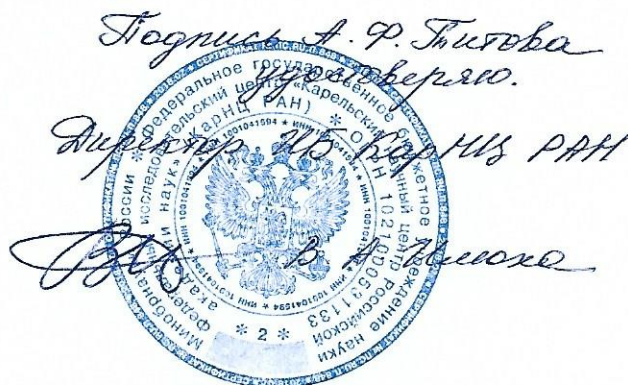 Подпись А. Ф. Титова
удостоверяю.
Директор ИБ КарНЦ РАН
В А Илюха
Минобрнауки России * Федеральное государственное бюджетное учреждение науки
Федеральный исследовательский центр «Карельский научный центр Российской
академии наук» (КарНЦ РАН) * ОГРН 1021000531133
* ИНН 1001041594 * ИНН 1001041594 * ИНН 1001041594 *
* 2 *